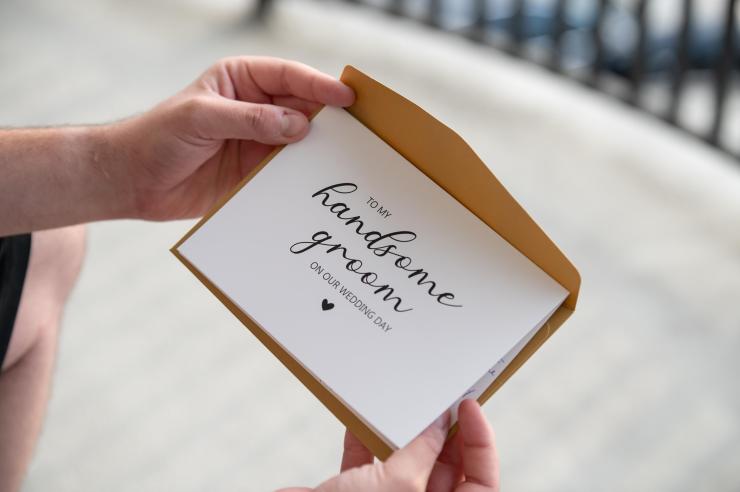 TO MY
handsome
groom
ON OUR WEDDING DAY